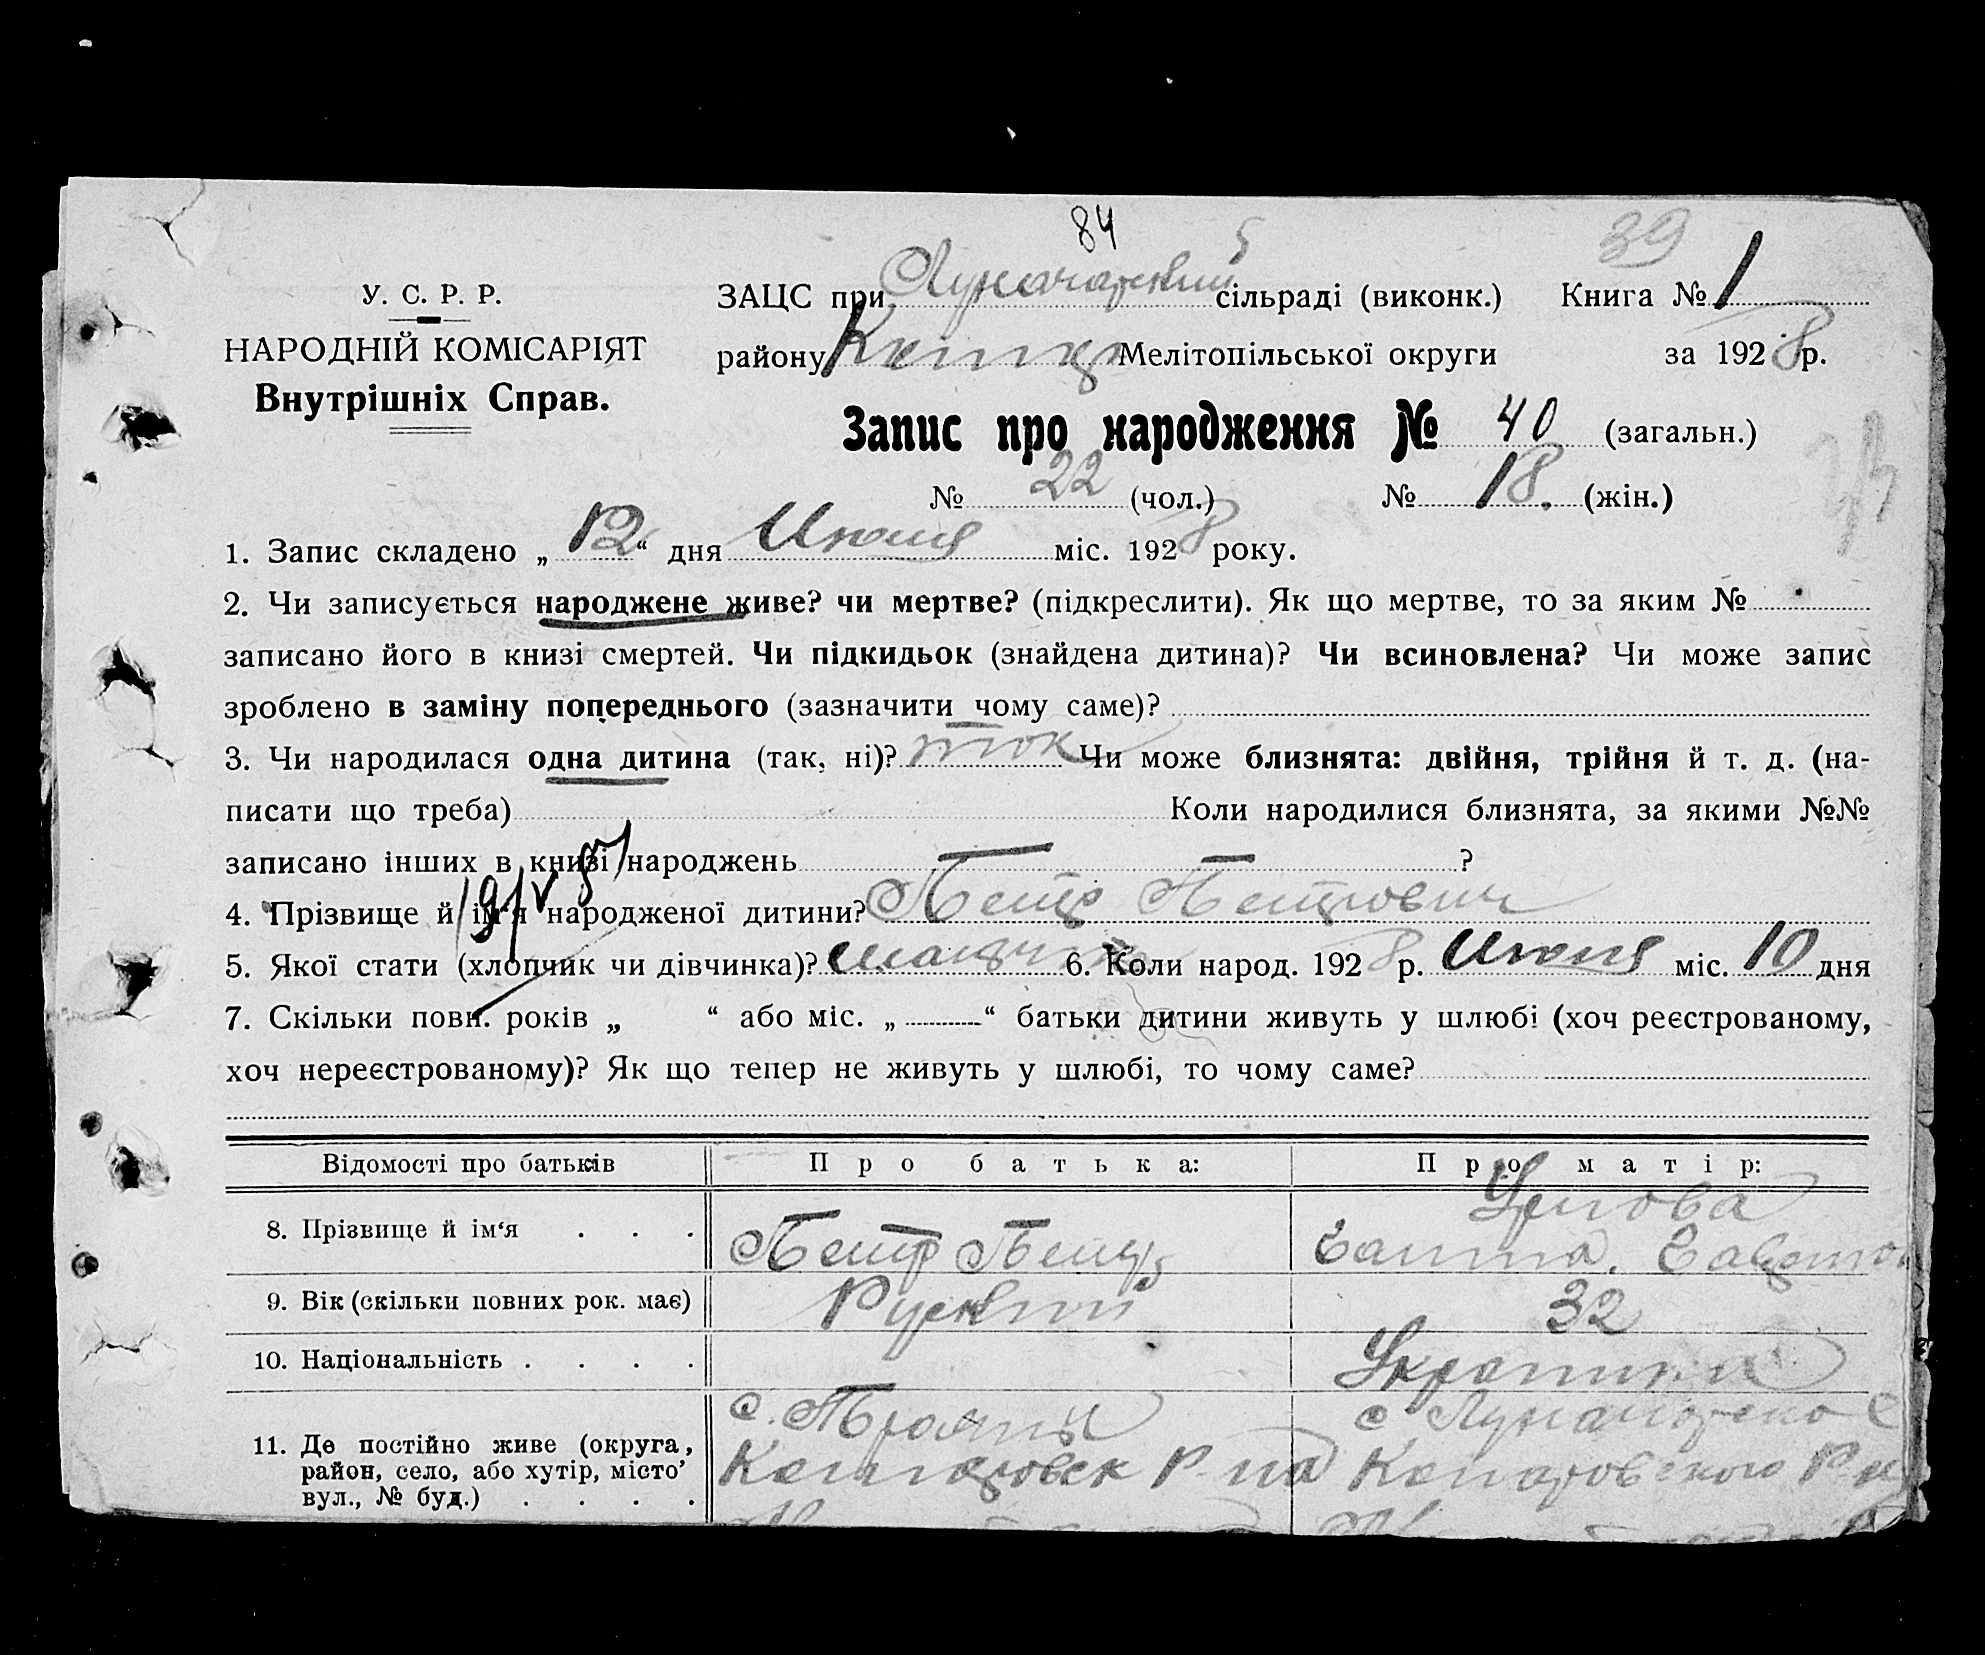 84
39
У. С. Р. Р.
НАРОДНІЙ КОМІСАРІЯТ
Внутрішніх Справ.
ЗАЦС при Луначарский сільраді (виконк.) Книга № 1
району Мелітопільської округи за 1928 р.
Запис про народження № 40 (загальн.)
№ 22 (чол.) № 18. (жін.)
1. Запис складено „12“ дня Июня міс. 1928 року.
2. Чи записується народжене живе? чи мертве? (підкреслити). Як що мертве, то за яким №
записано його в книзі смертей. Чи підкидьок (знайдена дитина)? Чи всиновлена? Чи може запис
зроблено в заміну попереднього (зазначити чому саме)?
3. Чи народилася одна дитина (так, ні)? так Чи може близнята: двійня, трійня й т. д. (на-
писати що треба) Коли народилися близнята, за якими №№
записано інших в книзі народжень ?
4. Прізвище й ім'я народженої дитини? Петр Петрович
5. Якої стати (хлопчик чи дівчинка)? 6. Коли народ. 1928 р. Июня міс. 10 дня
7. Скільки повн. років „ “ або міс. „ “ батьки дитини живуть у шлюбі (хоч реєстрованому,
хоч нереєстрованому)? Як що тепер не живуть у шлюбі, то чому саме?
Відомості про батьків Про батька: Про матір:
8. Прізвище й ім‘я . . . Петр Петр
9. Вік (скільки повних рок. має) Руский 32
10. Національність . . . .
11. Де постійно живе (округа, с. Трояны с
район, село, або хутір, місто’
вул., № буд.) . . . .